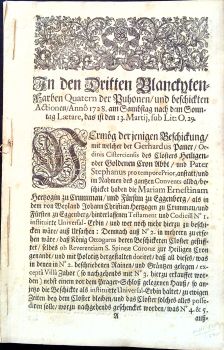 In den Dritten Blanckyten-
Farben Quatern der Puhonen/ und beschickten
Actionen/ Annô 1728. am Sambstag nach dem Sonn-
tag Lætare, das ist den 13. Martij, sub Lit: O. 29.
Vermög derjenigen Beschickung/
mit welcher der Gerhardus Pauer/ Or-
dinis Cisterciensis des Closters Heiligen-
oder Goldenen Cron Abbt/ und Pater
Stephanus pro tempore Prior, anstatt/ und
im Nahmen des gantzen Convents allda/ be-
schicket haben die Mariam Ernestinam
Hertzogin zu Crummau/ und Fürstin zu Eggenberg/ als in
dem von Weyland Johann Christian Hertzogen zu Crummau/ und
Fürsten zu Eggenberg/ hinterlassenen Testament und Codicill N° 1.
instituirte Universal-Erbin/ und wer noch mehr hierzu zu beschi-
cken wäre/ auß Ursachen: Demnach auß N° 2. in mehrern zu erse-
hen wäre/ daß König Ottogarus deren Beschickten Closter gestif-
tet/ selbes ob Reverentiam S. Spineæ Coronæ zur Heiligen Cron
genandt/ und mit Dolotez der gestalten dotiret/ daß all dieses/ was
in denen in N° 2. beschriebenen Rainen/ und Gräntzen gelegen/ ex-
ceptâ Villâ Zabor (so nachgehends mit N° 3. hierzu erkauffet wor-
den) nebst einem vor dem Prager-Schloß gelegenen Hauß/ so an-
jetzo die Beschickte als instituirte Universal-Erbin haltet/ zu ewigen
Zeiten bey dem Closter bleiben/ und das Closter solches alles posse-
diren solle/ worzu nachgehends geschencket worden/ was N° 4. & 5.
A
auß-